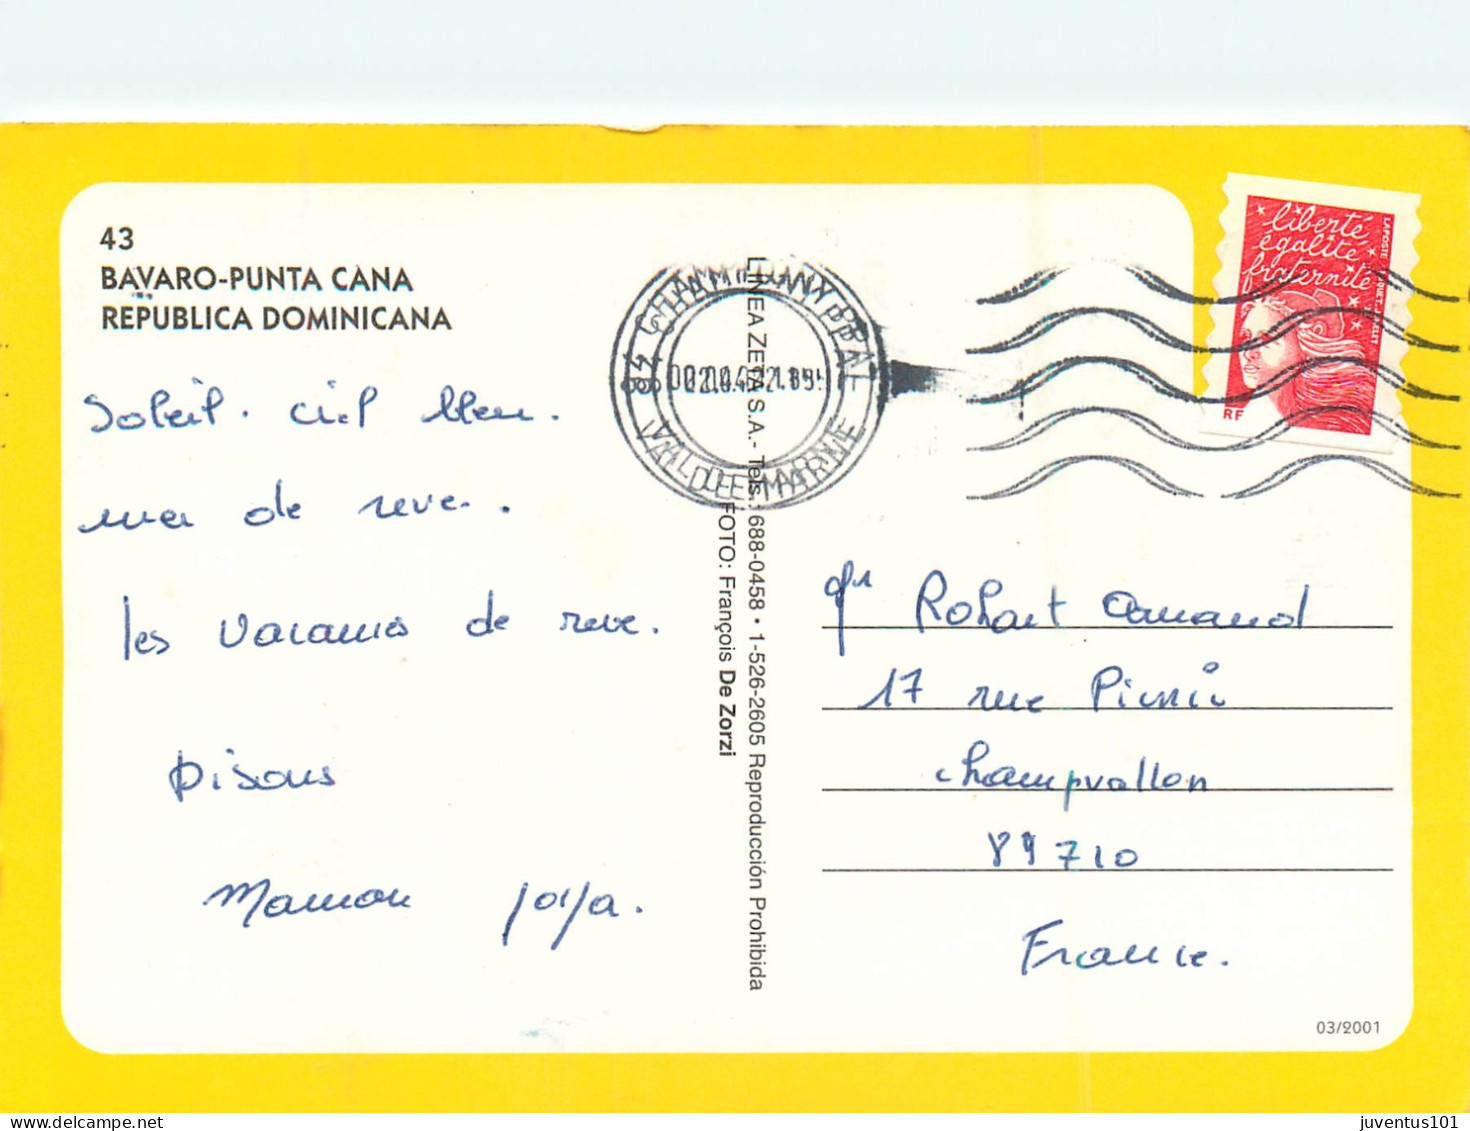 43
BAVARO-PUNTA CANA
REPUBLICA DOMINICANA
Soleil. ciel bleu.
mer de reve.
les vacances de reve.
Bisous
Maman
LINEA ZETA S.A.- Tels. 688-0458 • 1-526-2605 Reproducción Prohibida
FOTO: François De Zorzi
VAL DE MARNE
liberté
égalité
fraternité
LA POSTE
RF
Armand
17 rue
Champvallon
89710
France.
03/2001
juventus101